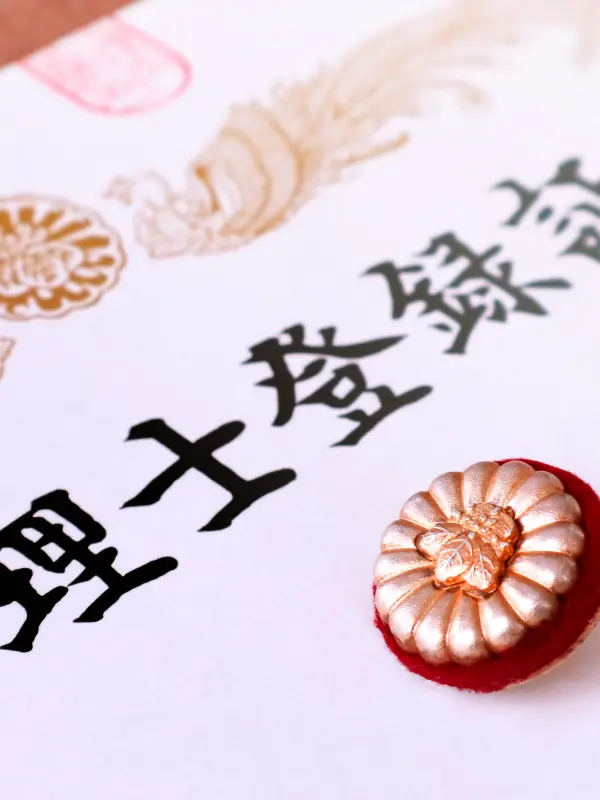 理士登録